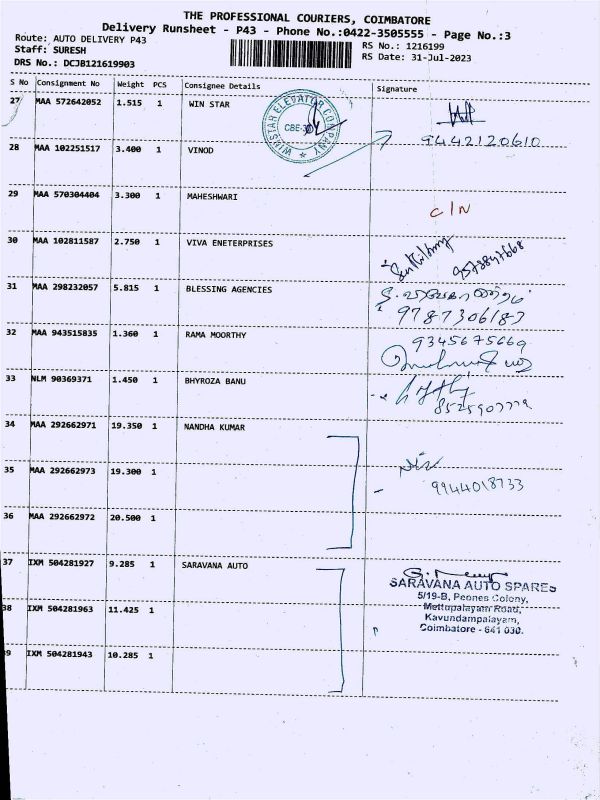 THE PROFESSIONAL COURIERS, COIMBATORE
Delivery Runsheet - P43 - Phone No.:0422-3505555 - Page No.:3
Route: AUTO DELIVERY P43
RS No.: 1216199
Staff: SURESH
RS Date: 31-Jul-2023
DRS No.: DCJB121619903
S No Consignment No Weight PCS Consignee Details Signature
27 MAA 572642052 1.515 1 WIN STAR
WINSTAR ELEVATOR COMPANY
CBE-30
9442120610
28 MAA 102251517 3.400 1 VINOD
29 MAA 570304404 3.300 1 MAHESHWARI
C/N
30 MAA 102811587 2.750 1 VIVA ENETERPRISES
31 MAA 298232057 5.815 1 BLESSING AGENCIES
9787306187
32 MAA 943515835 1.360 1 RAMA MOORTHY
9345675669
33 NLM 90369371 1.450 1 BHYROZA BANU
34 MAA 292662971 19.350 1 NANDHA KUMAR
35 MAA 292662973 19.300 1
9944018733
36 MAA 292662972 20.500 1
37 IXM 504281927 9.285 1 SARAVANA AUTO
SARAVANA AUTO SPARES
5/19-B, Peones Colony,
Mettupalayam Road,
Kavundampalayam,
Coimbatore - 641 030.
38 IXM 504281963 11.425 1
39 IXM 504281943 10.285 1